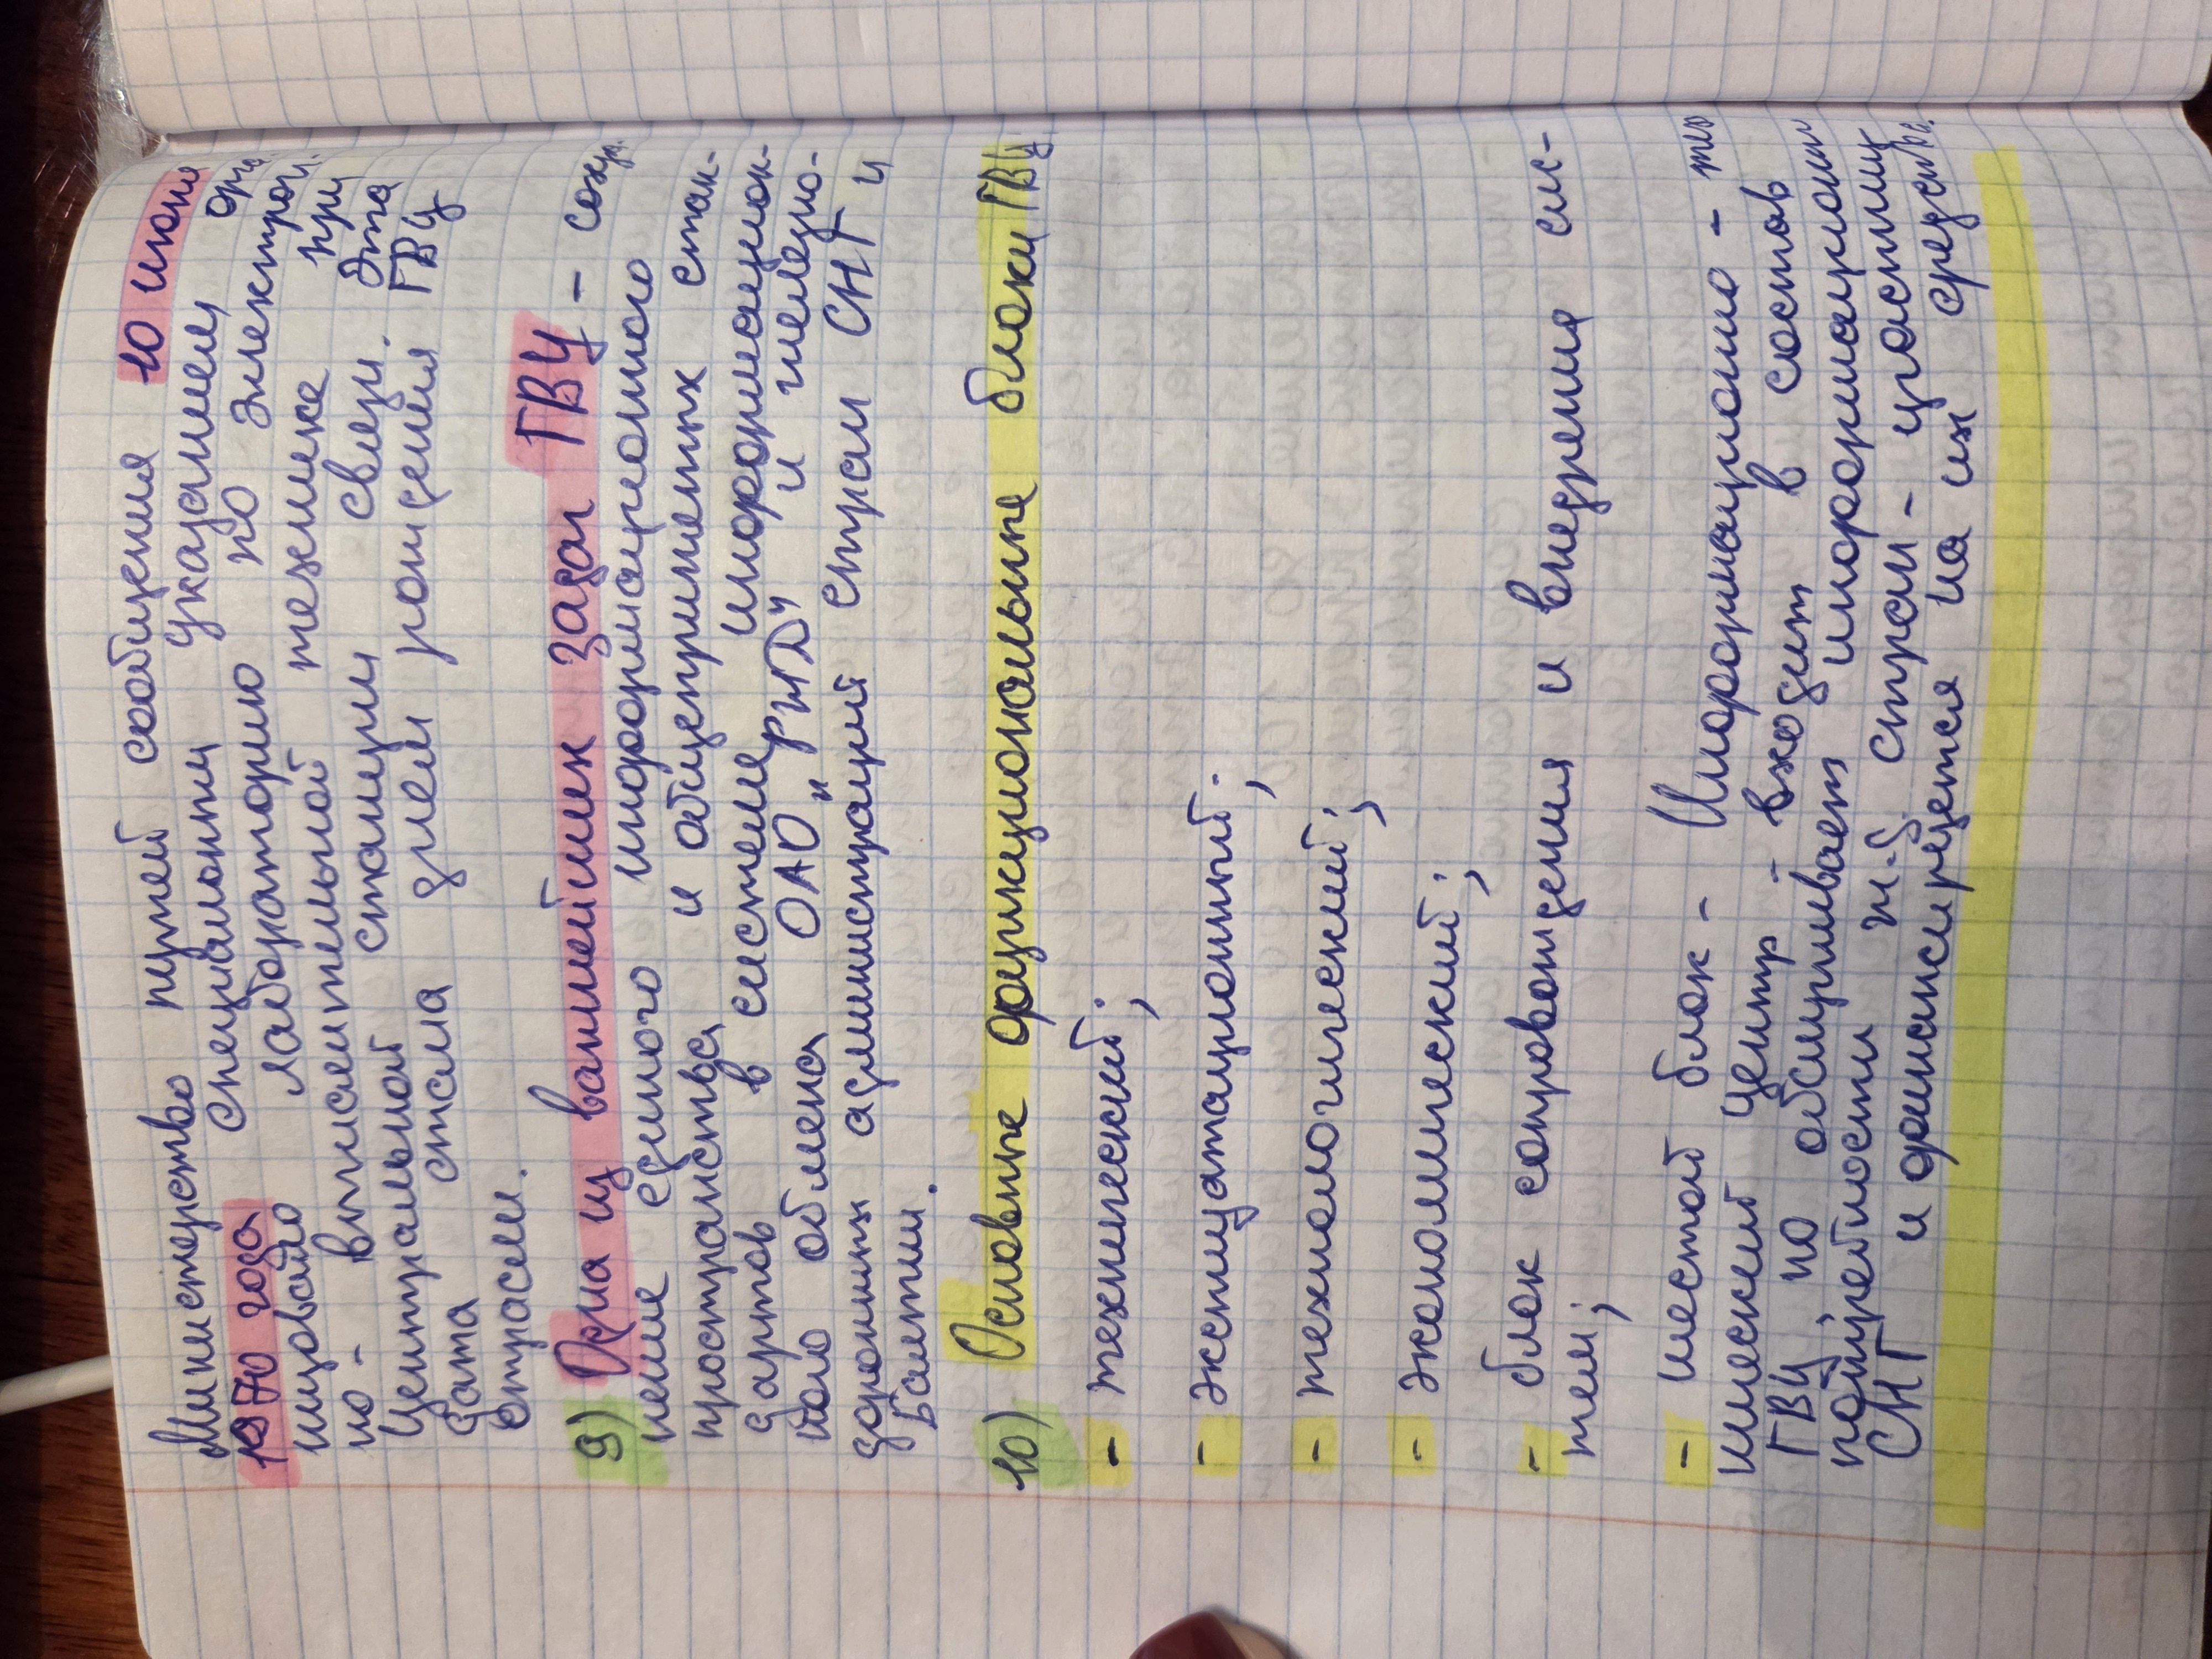 Министерство путей сообщения 10 июня
1970 года специальным указанием орга
низовало лабораторию по электрон.
но - вычислительной технике при
Центральной станции связи. Эта
дата стала днем рождения ГВЦ
отрасли.
9) Одна из важнейших задач ГВЦ - сохра
нение единого информационного
пространства и общепринятых стан-
дартов в системе информацион-
ного обмена ОАО "РЖД" и железно-
дорожных администраций стран СНГ и
Балтии.
10) Основные функциональные блоки ГВЦ
- технический;
- эксплуатационный;
- технологический;
- экономический;
- блок сопровождения и внедрения сис-
тем;
- шестой блок - Информационно - тех
нический центр - входит в состав
ГВЦ, но обслуживает информационные
потребности ж-д стран - участниц
СНГ и финансируется на их средства.